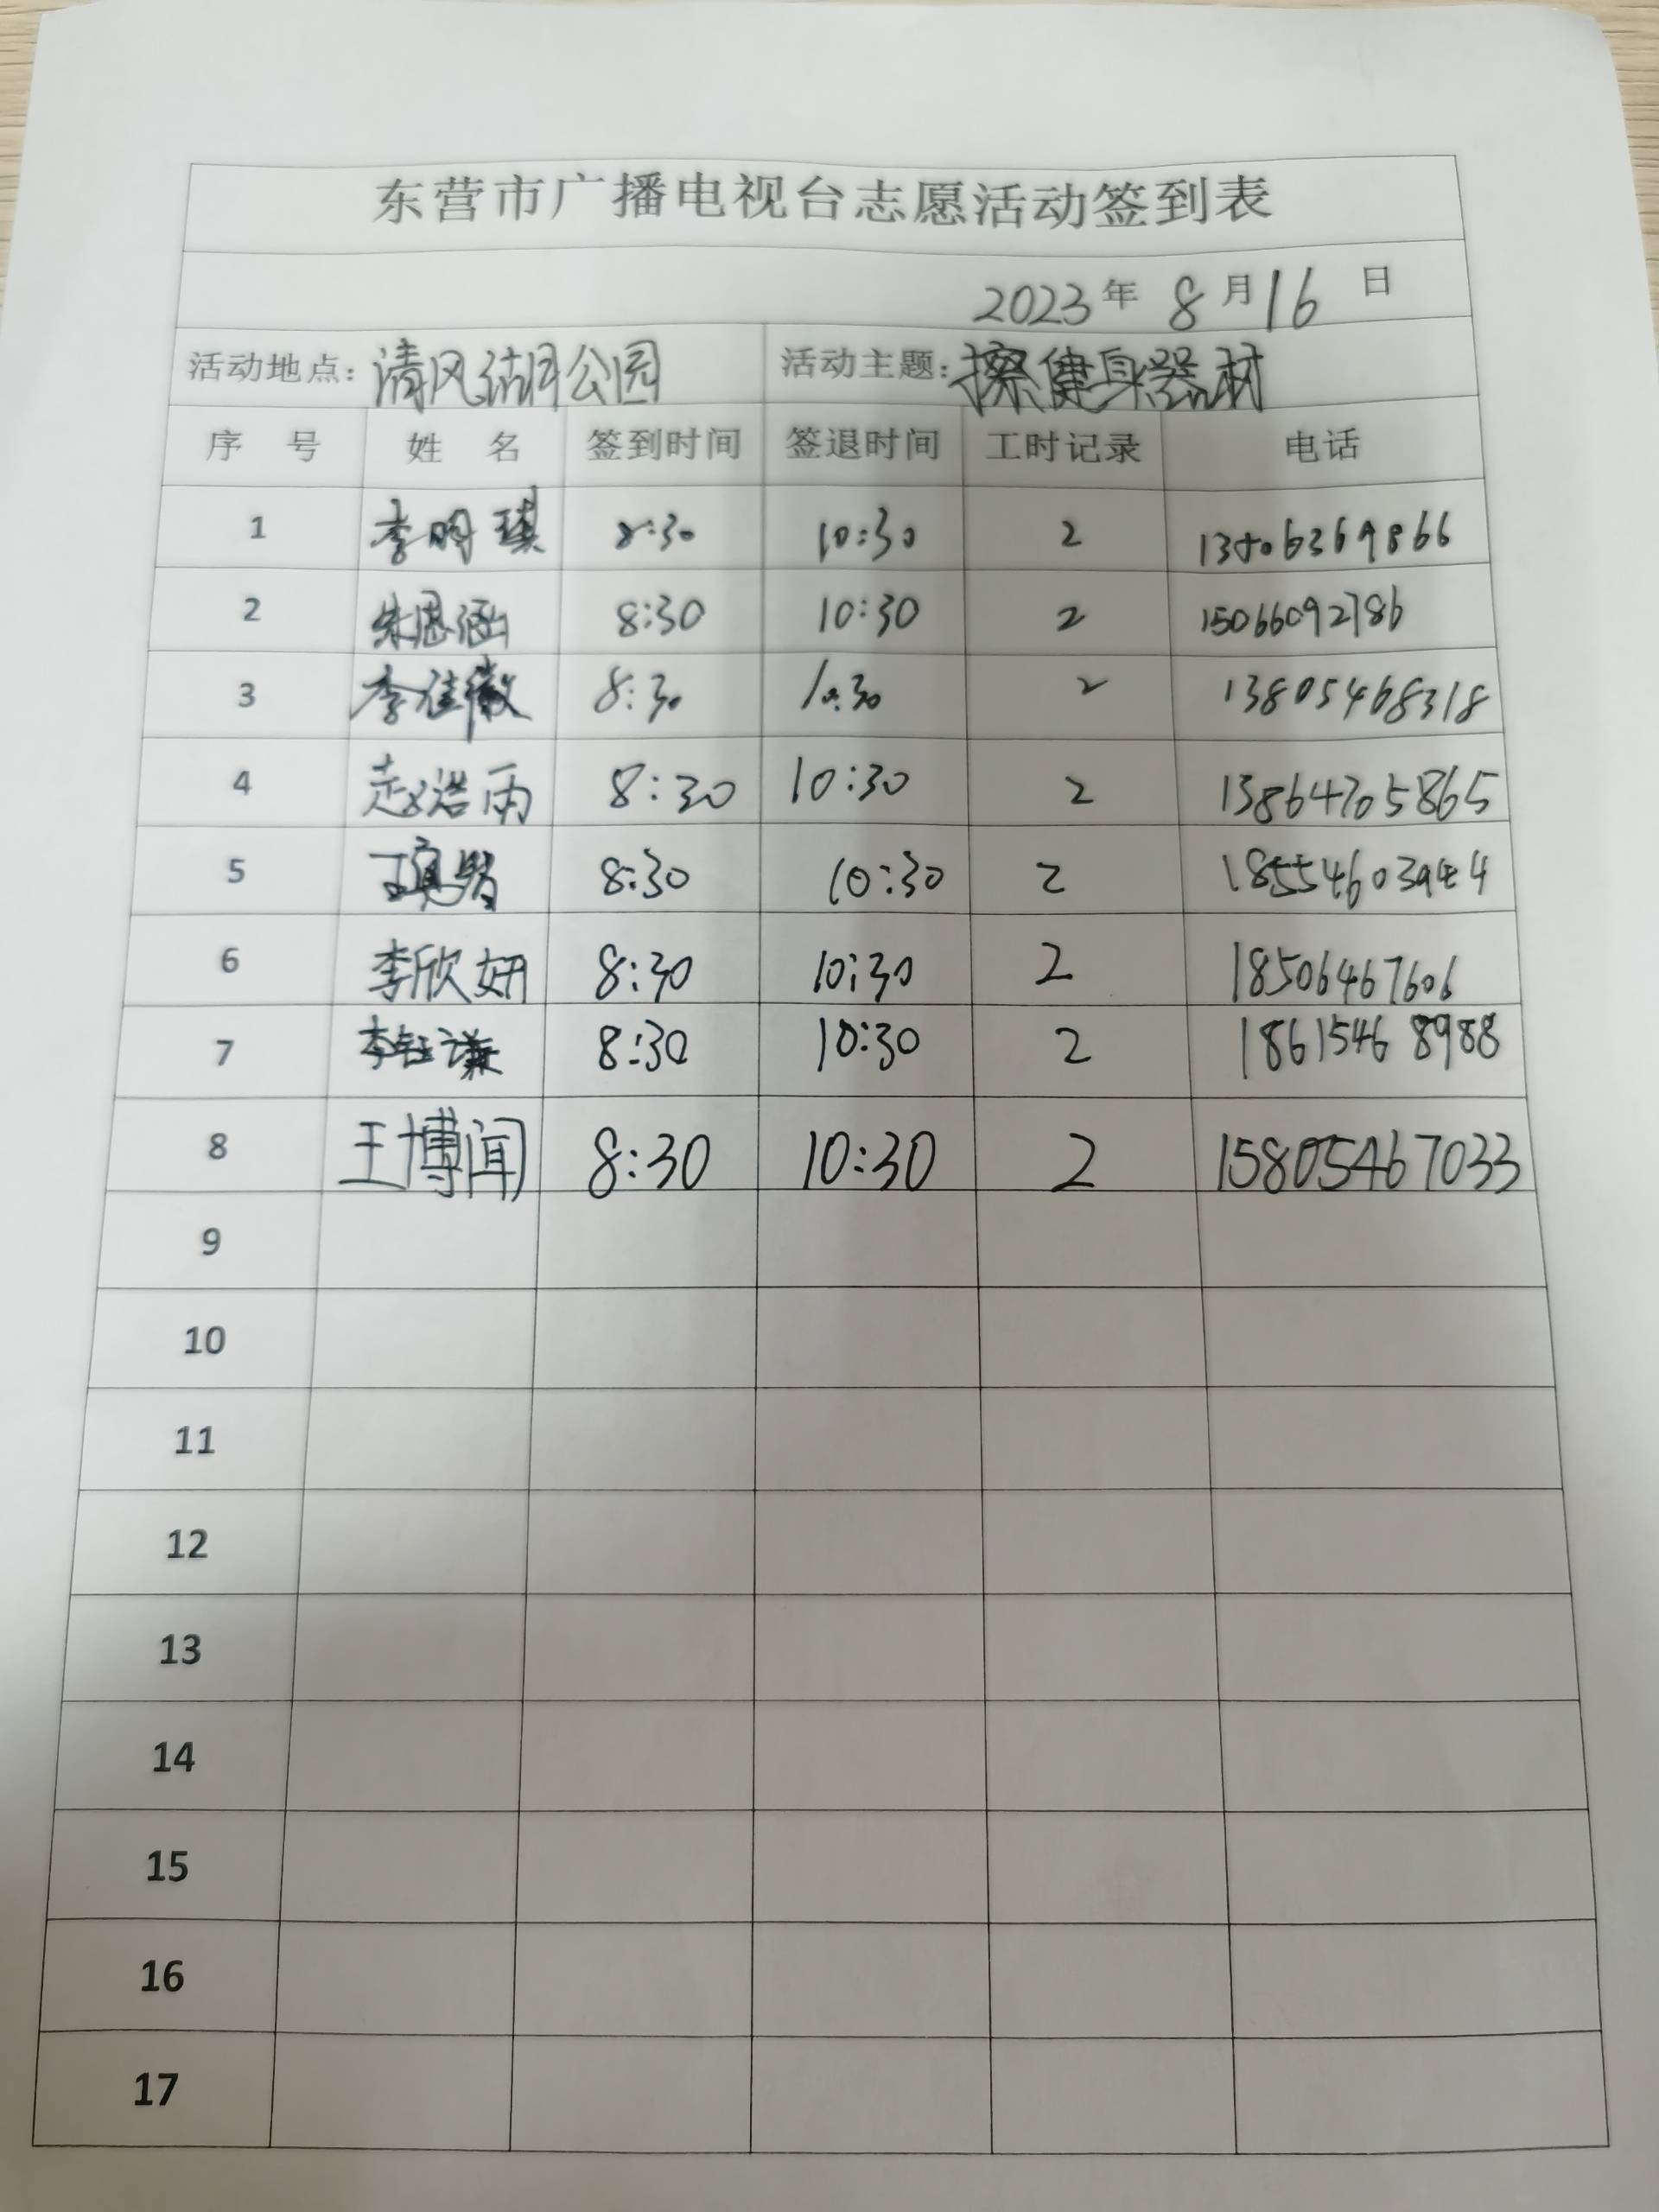 东营市广播电视台志愿活动签到表
2023年 8月16 日
活动地点：清风湖公园 活动主题：擦健身器材
序 号 姓 名 签到时间 签退时间 工时记录 电话
1 李明琪 8:30 10:30 2
2 朱恩涵 8:30 10:30 2 15066092786
3 李佳徽 8:30 10:30 2 13805468318
4 赵浩雨 8:30 10:30 2 13864705865
5 8:30 10:30 2
6 李欣妍 8:30 10:30 2 18506467606
7 李钰谦 8:30 10:30 2 18615468988
8 王博闻 8:30 10:30 2 15805467033
9
10
11
12
13
14
15
16
17